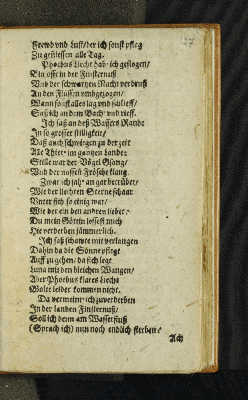 27
Frewd vnd Lust/ der ich sonst pfleg
Zu geniessen alle Tag.
Phœbus Liecht hab ich geflogen/
Bin offt in der Finsternuß
Vnd der schwartzen Nacht verdruß
An den Flüssen vmbgezogen/
Wann sonst alles lag vnd schlieff/
Saß ich an dem Bach/ vnd rieff.
Ich saß an deß Wassers Rande
In so grosser stilligkeit/
Daß auch schwiegen zu der zeit
Alle Thier im gantzen Lande:
Stille war der Vögel Gsang/
Vnd der nassen Frösche klang.
Zwar ich sah/ an gar betrübet/
Wie der liechten Sterne schaar
Vnter sich so einig war/
Wie der ein den andren liebet:
Du mein Göttin lessest mich
Hie verderben jämmerlich.
Ich saß/ schawte mit verlangen
Dahin da die Sonne pflegt
Auff zu gehen/ da sich legt
Luna mit den bleichen Wangen/
Aber Phœbus klares Liecht
Wolte leider kommen nicht.
Da vermeint ich zu verderben
In der landen Finsternuß/
Soll ich denn am Wasserfluß
(Sprach ich) nun noch endlich sterben?
Ach